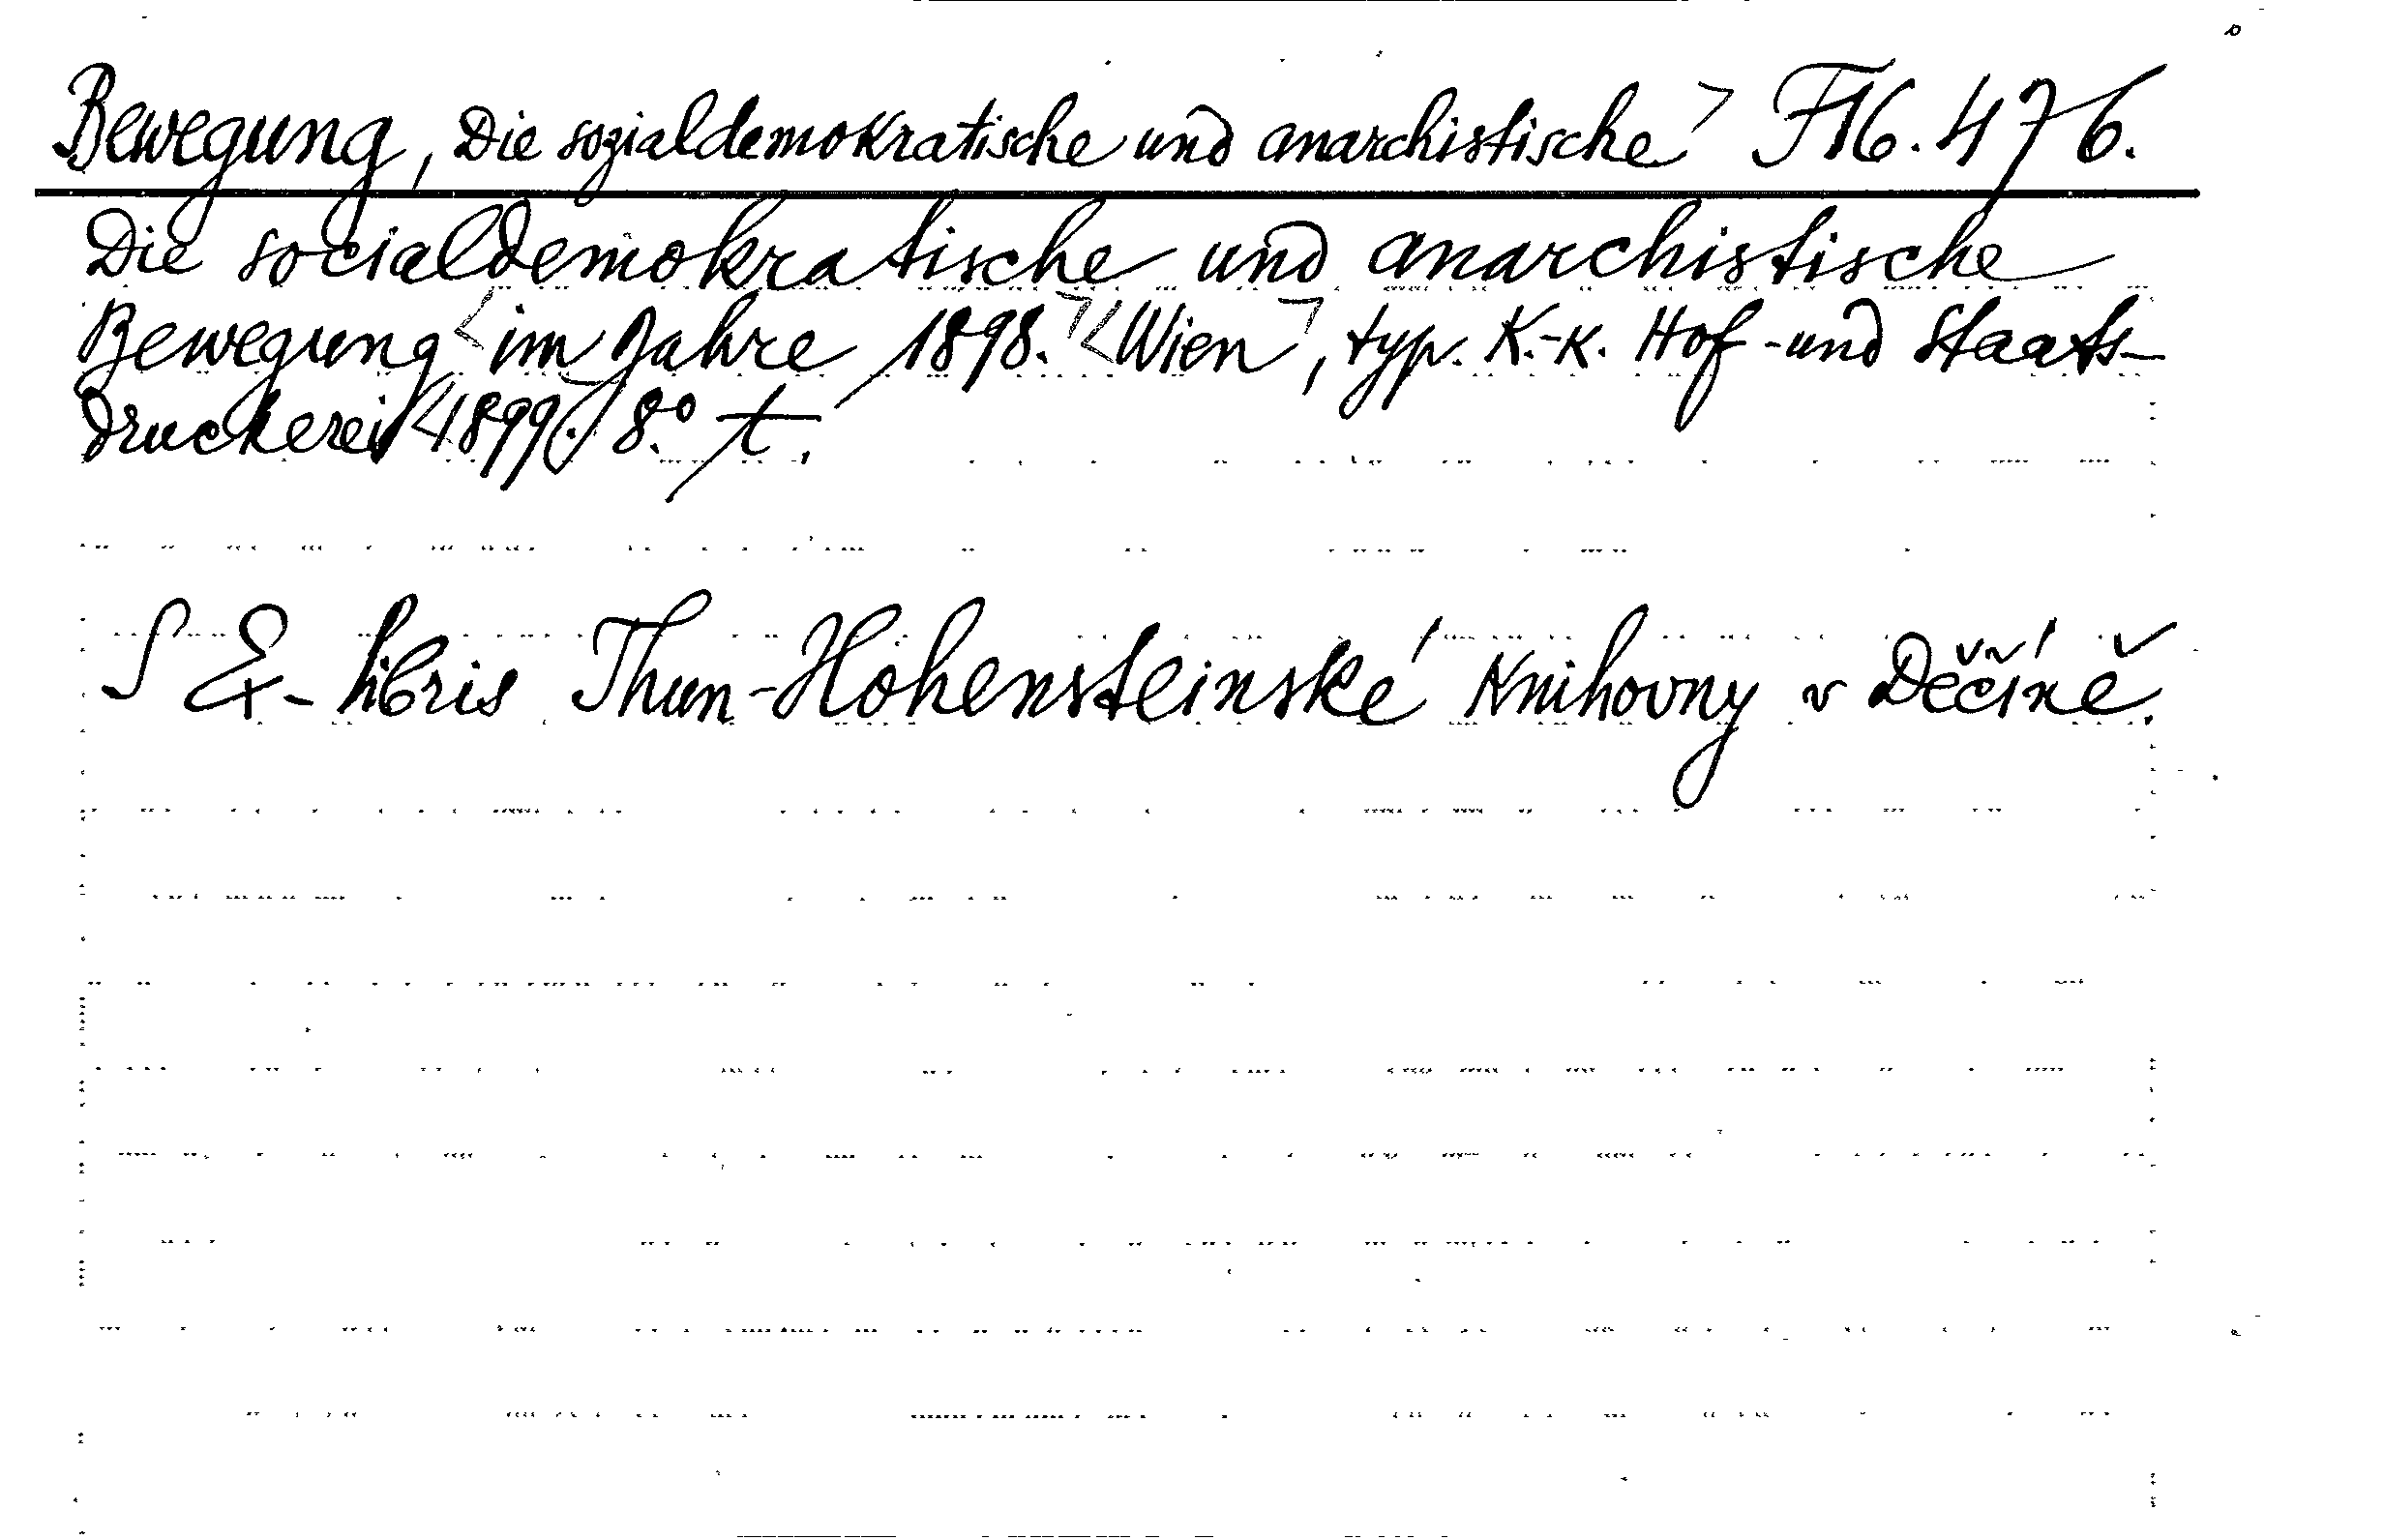 Bewegung, Die sozialdemokratische und anarchistische> F 16.476.
Die socialdemokratische und anarchistische
Bewegung <im Jahre 1898.> <Wien>, typ. K.-K. Hof- und Staats-
druckerei <1899.> 8.° t.
S Ex-libris Thun-Hohensteinské knihovny v Děčíně.